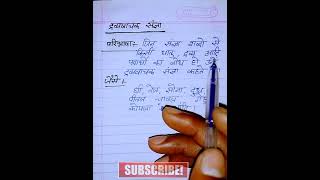 द्रव्यवाचक संज्ञा
परिभाषा:- जिन संज्ञा शब्दों से
किसी धातु, द्रव्य आदि
पदार्थों का बोध हो
द्रव्यवाचक संज्ञा कहते
जैसे
घी, तेल, सोना, दूध,
पीतल, चावल,
कोयला
SUBSCRIBE!